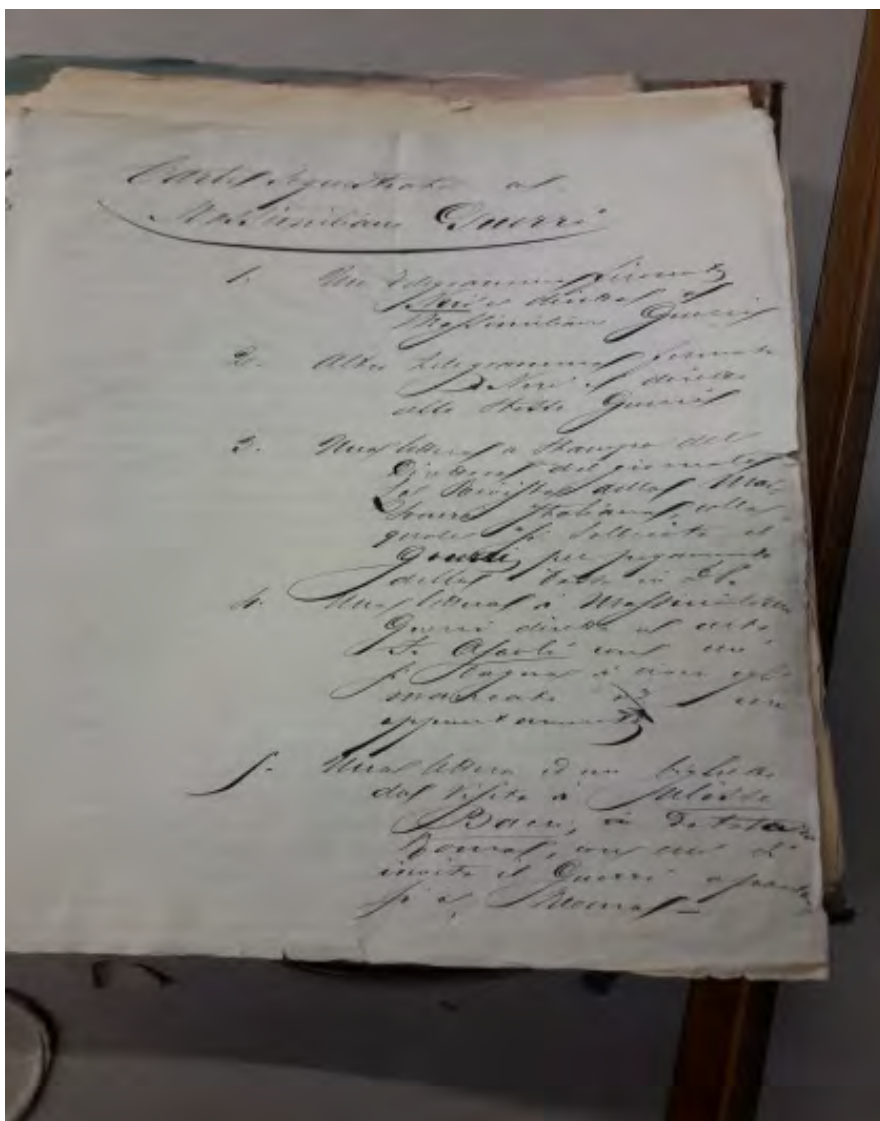 Carte sequestrate al
Massimiliano Guerri
1. Un telegramma firmato
Neri e diretto al
Massimiliano Guerri
2. Altro telegramma firmato
Neri e diretto
allo stesso Guerri
3. Una lettera a stampa del
Direttore del giornale
La Rivista della Mas
soneria Italiana, colla
quale si sollecita il
Guerri per pagamento
della
4. Una lettera a Massimiliano
Guerri diretta al certo
con cui
si lagna di non
mancato ad un
appuntamento
5. Una lettera ed un biglietto
da visita di Ulisse
Bacci, in data
Roma, con cui si
invita il Guerri a
si a Roma